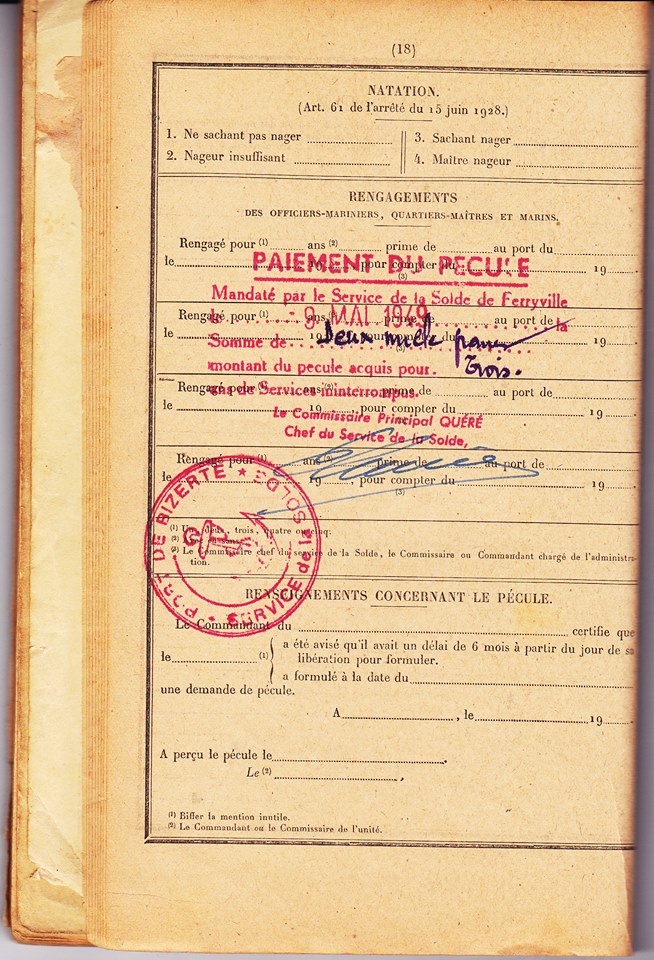 (18)
NATATION.
(Art. 61 de l'arrêté du 15 juin 1928.)
1. Ne sachant pas nager
2. Nageur insuffisant
3. Sachant nager
4. Maître nageur
RENGAGEMENTS
DES OFFICIERS-MARINIERS, QUARTIERS-MAÎTRES ET MARINS.
Rengagé pour (1) ans (2) prime de au port du
le 19 , pour compter du 19
(3)
PAIEMENT DU PECULE
Mandaté par le Service de la Solde de Ferryville
le - 9 MAI 1949 la
Somme de Deux mille francs
montant du pecule acquis pour. Trois.
ans de Services ininterrompus.
Le Commissaire Principal QUÉRÉ
Chef du Service de la Solde,
Rengagé pour (1) ans (2) prime de au port de
le 19 , pour compter du 19
(3)
Rengagé pour (1) ans (2) prime de au port de
le 19 , pour compter du 19
Rengagé pour (1) ans (2) prime de au port de
le 19 , pour compter du 19
(3)
PORT DE BIZERTE * SERVICE de la SOLDE *
(1) Un, deux, trois, quatre ou cinq.
(2)
(3) Le Commissaire chef du service de la Solde, le Commissaire ou Commandant chargé de l'administra-
tion.
RENSEIGNEMENTS CONCERNANT LE PÉCULE.
Le Commandant du certifie que
le (1) a été avisé qu'il avait un délai de 6 mois à partir du jour de sa
libération pour formuler.
a formulé à la date du
une demande de pécule.
A , le 19
A perçu le pécule le
Le (2) ,
(1) Biffer la mention inutile.
(2) Le Commandant ou le Commissaire de l'unité.